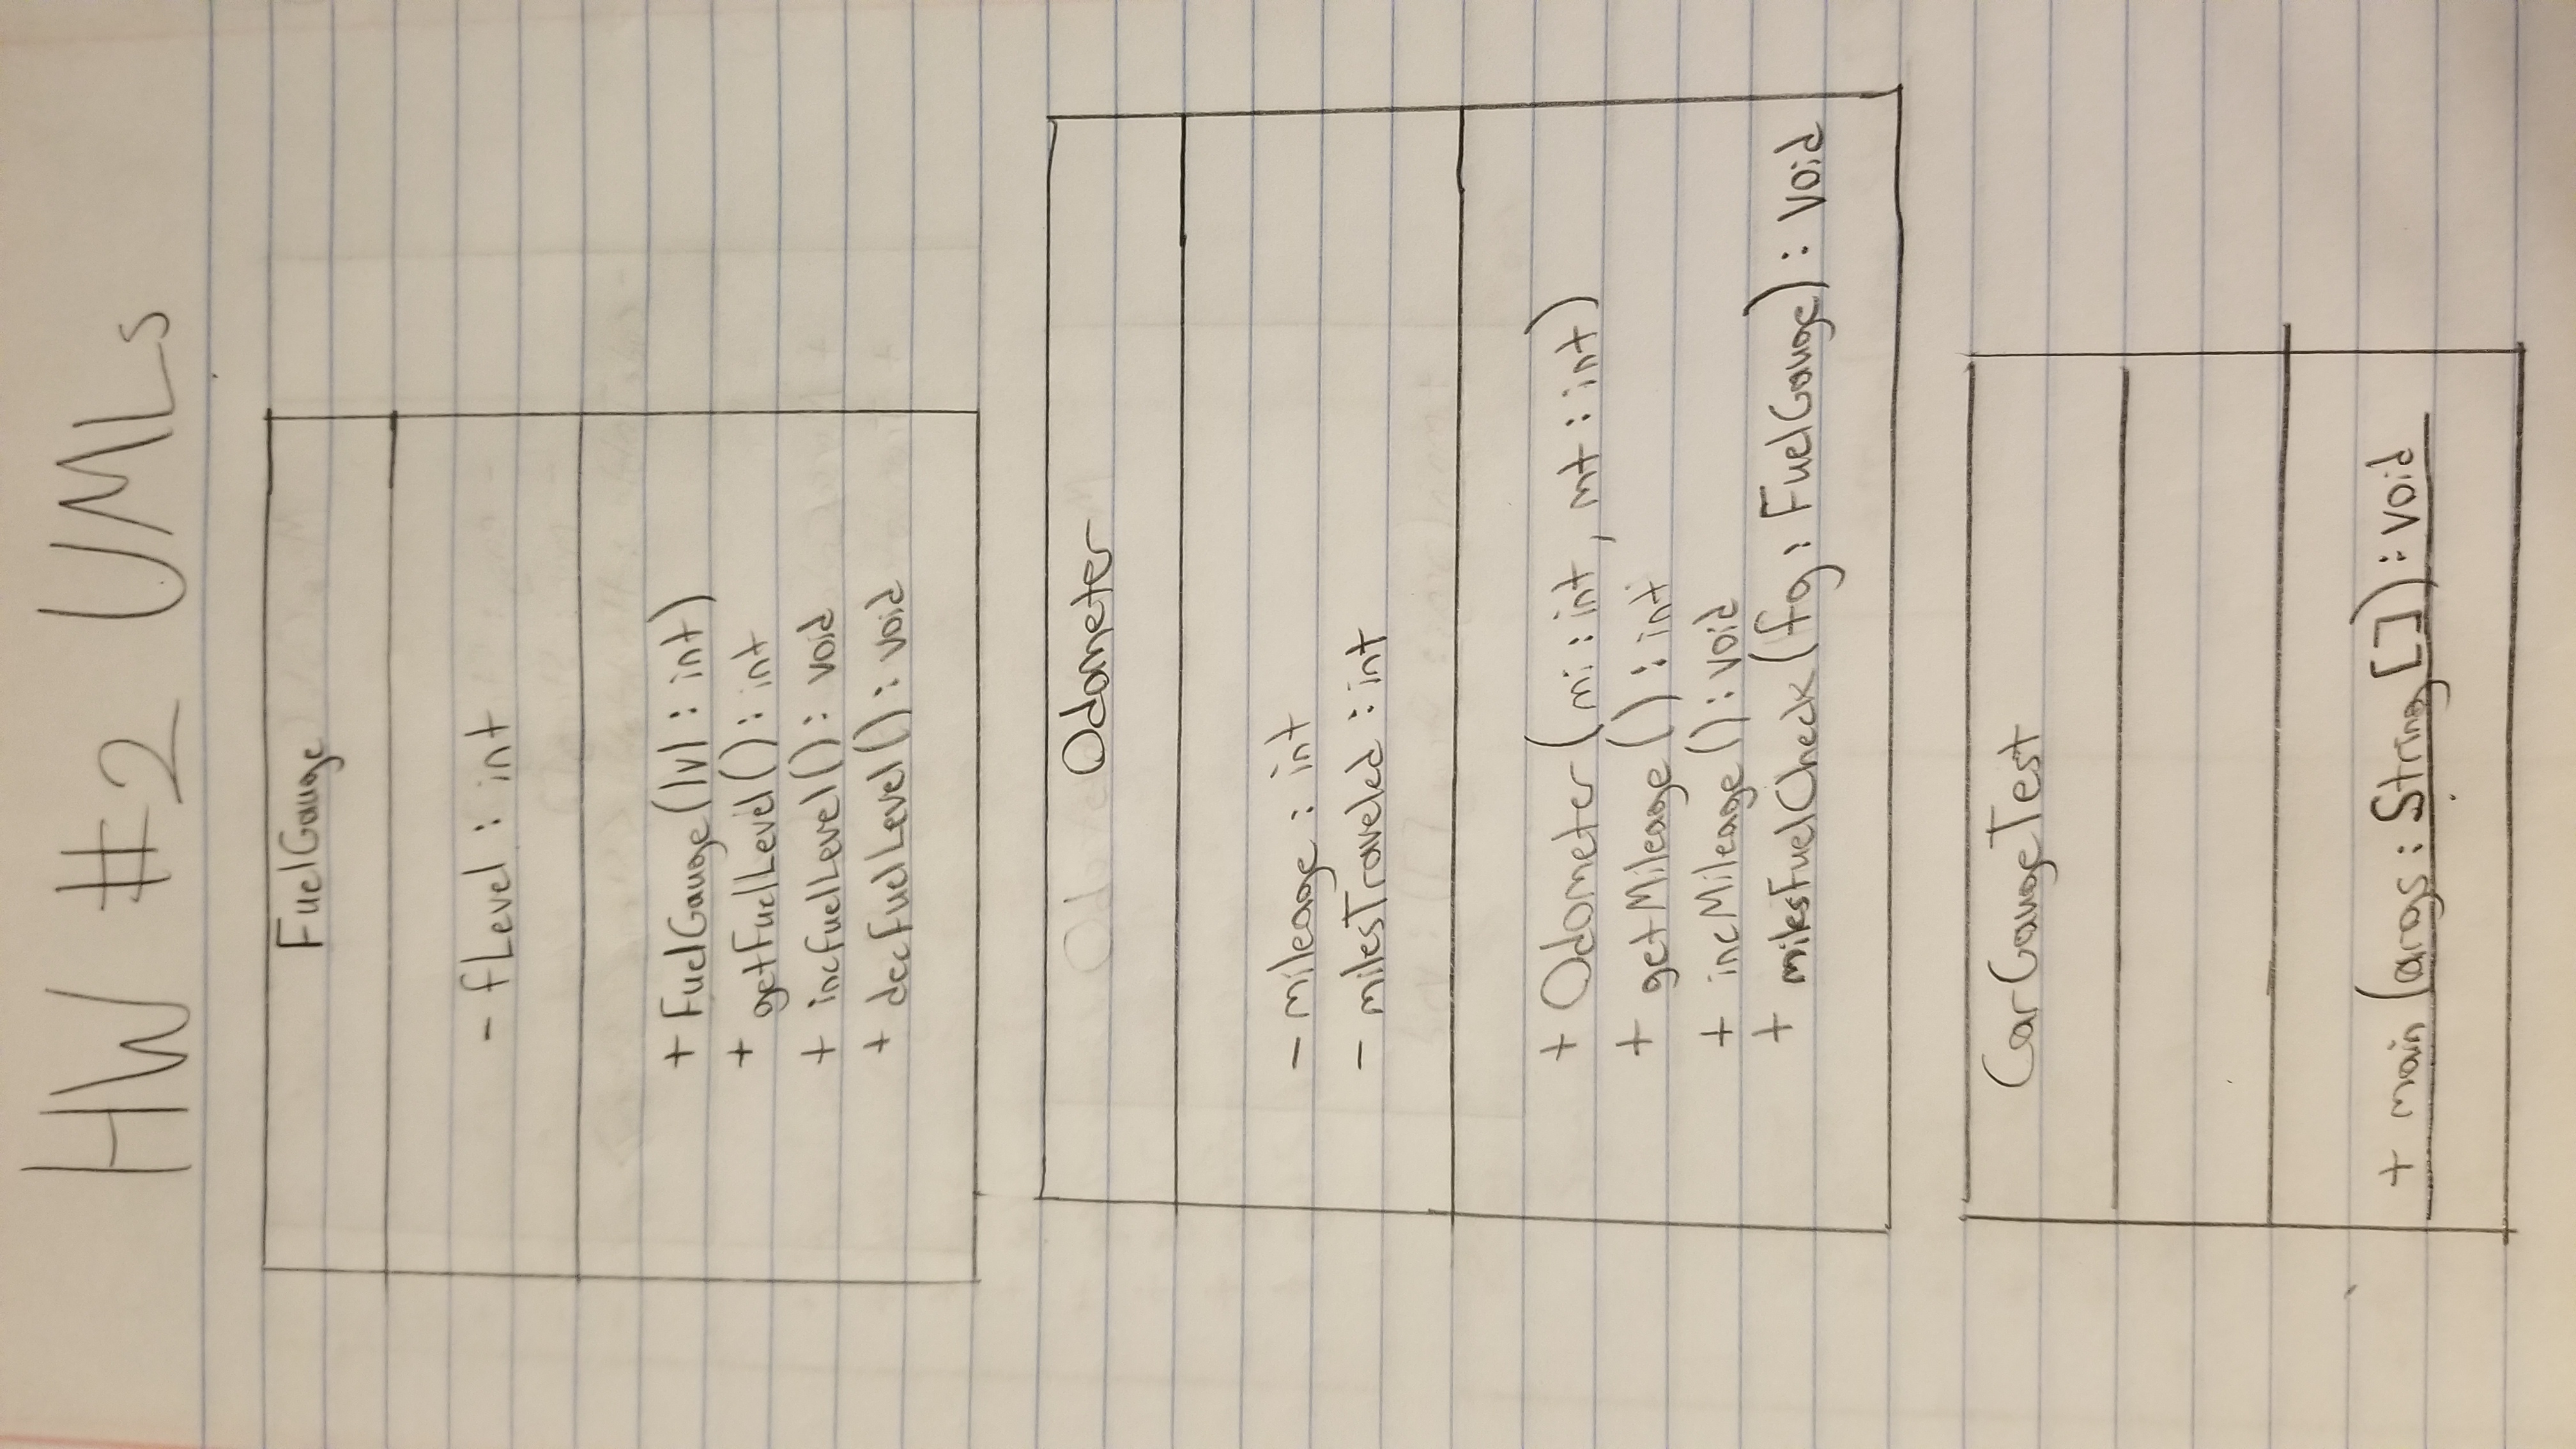 HW #2 UMLs
FuelGauge
- fLevel : int
+ FuelGauge(lvl : int)
+ getFuelLevel() : int
+ incFuelLevel() : void
+ decFuelLevel() : void
Odometer
- mileage : int
- milesTraveled : int
+ Odometer(mi : int, mt : int)
+ getMileage() : int
+ incMileage() : void
+ milesFuelCheck(fg : FuelGauge) : void
CarGaugeTest
+ main(args : String[]) : void